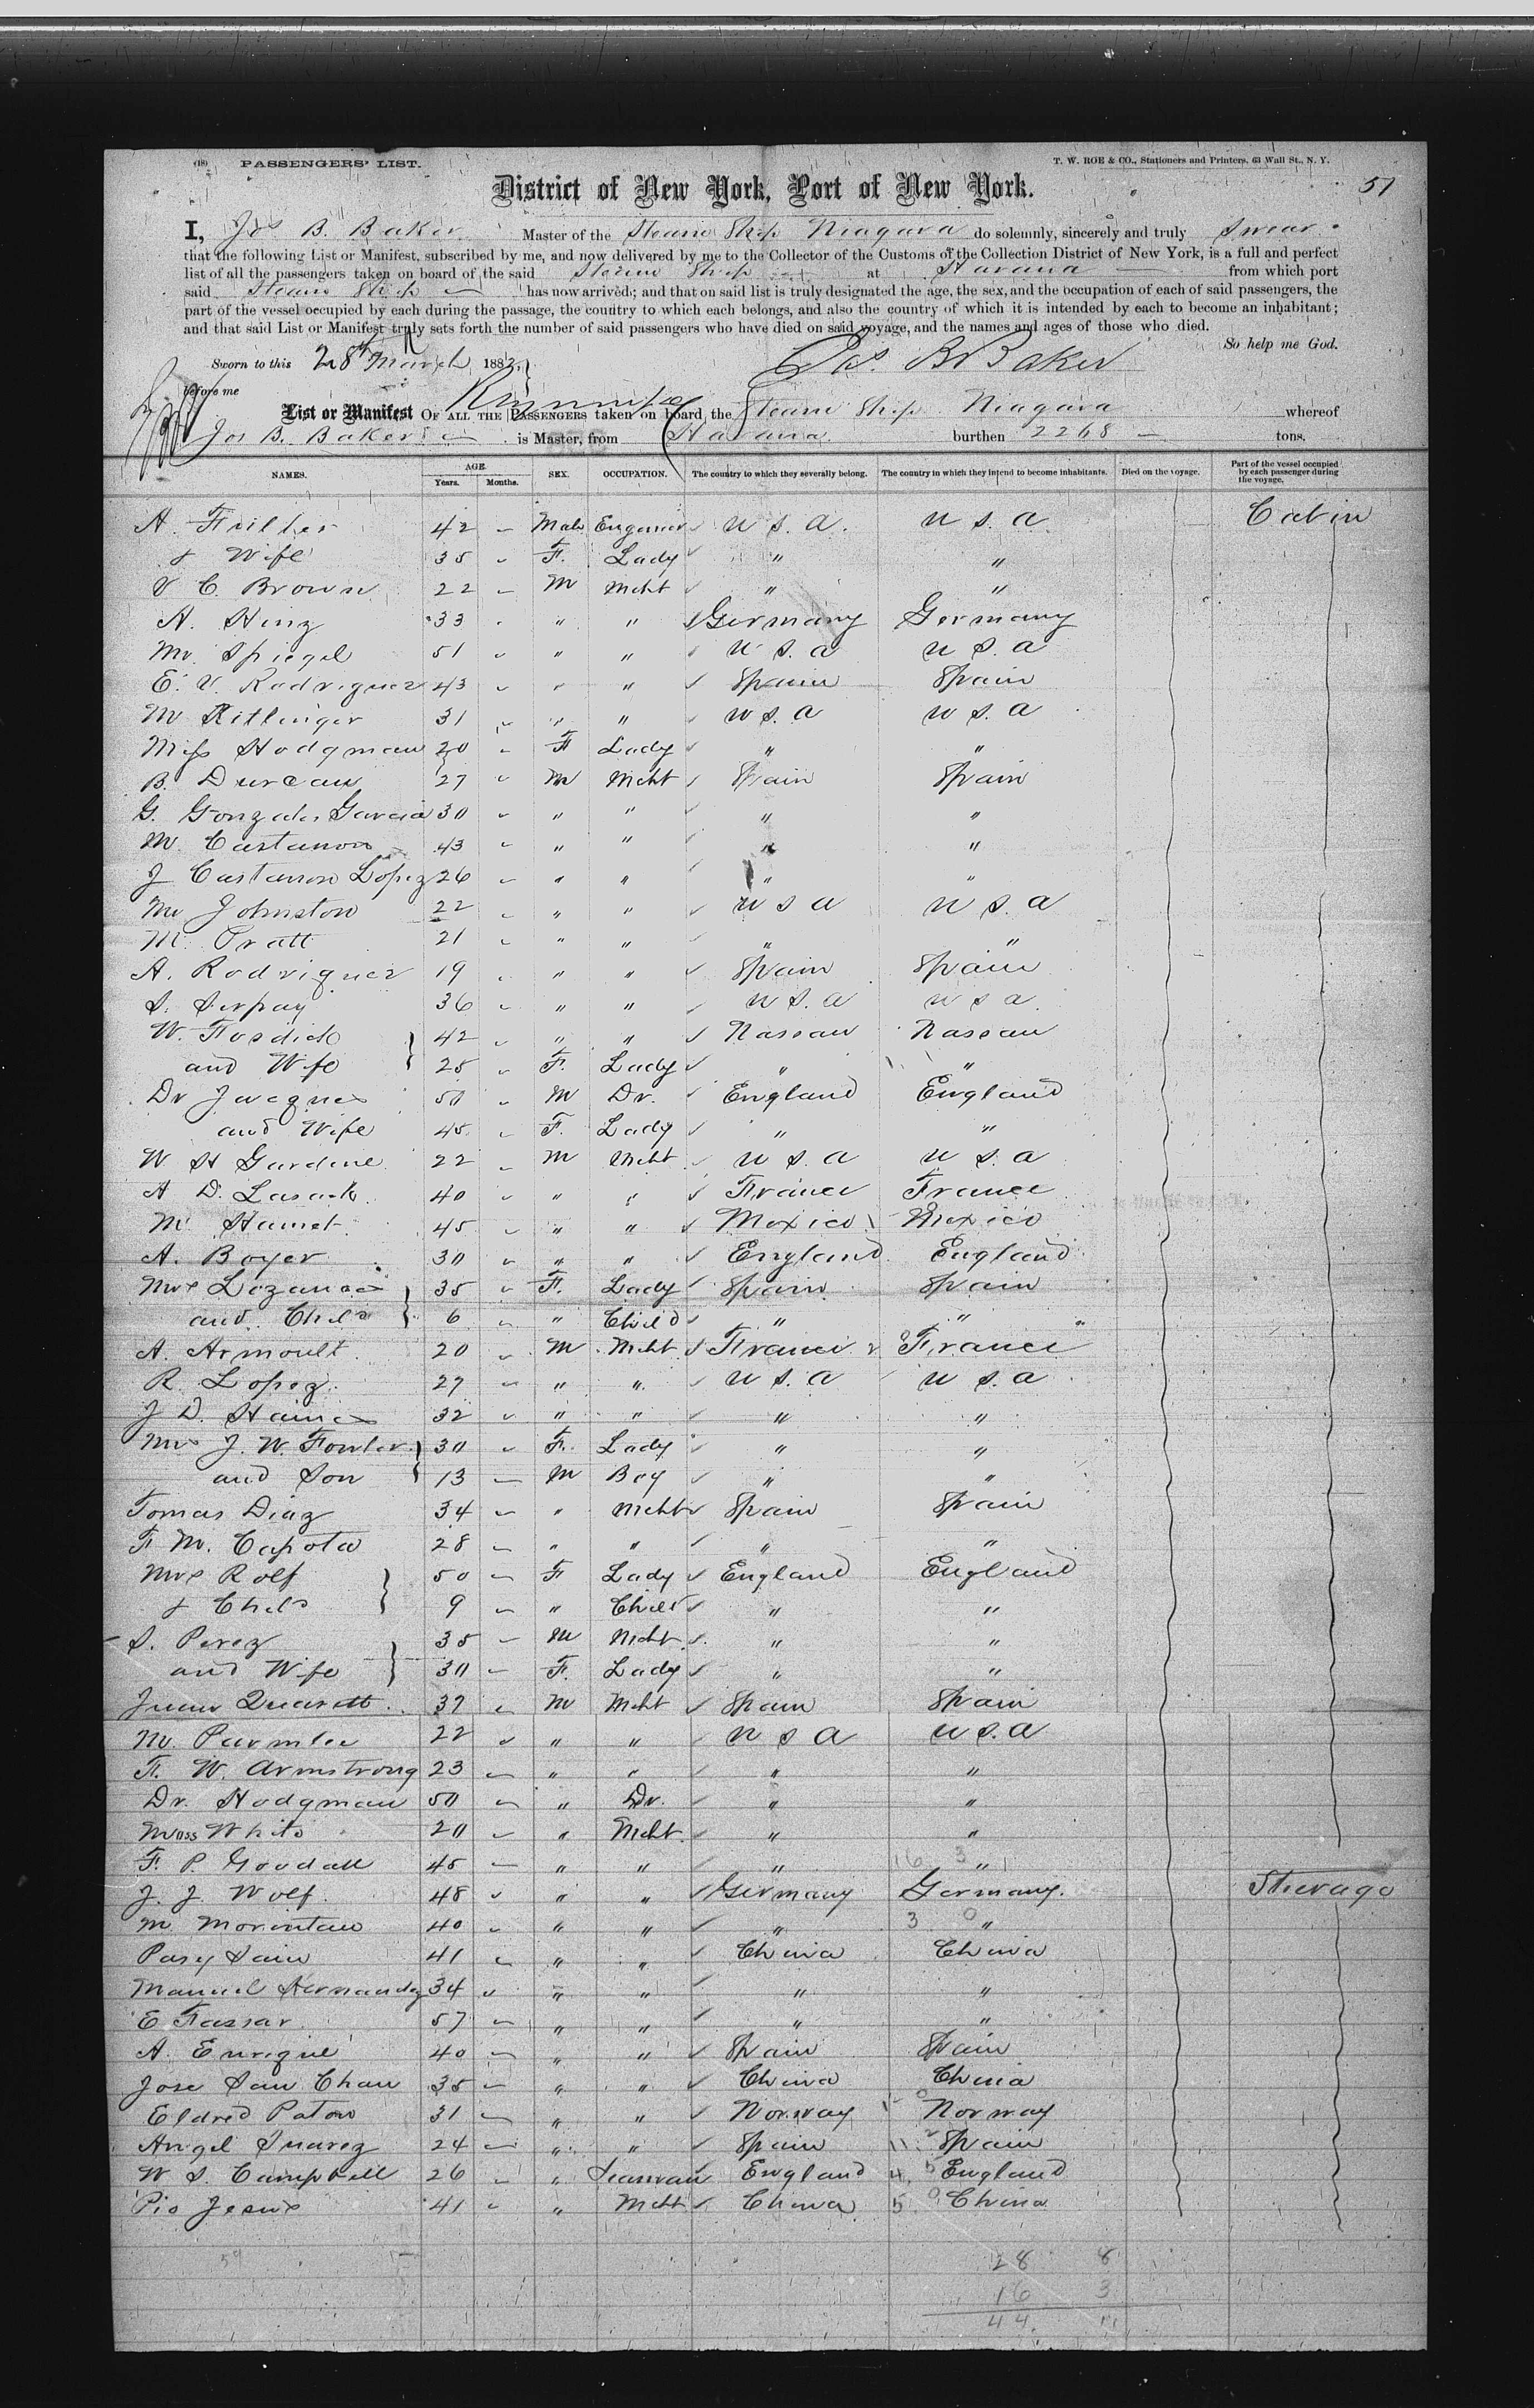 (18) PASSENGERS' LIST.
T. W. ROE & CO., Stationers and Printers, 63 Wall St., N. Y.
District of New York, Port of New York.
51
I, Jos B. Baker Master of the Steam Ship Niagara do solemnly, sincerely and truly swear
that the following List or Manifest, subscribed by me, and now delivered by me to the Collector of the Customs of the Collection District of New York, is a full and perfect
list of all the passengers taken on board of the said Steam Ship at Havana from which port
said Steam Ship has now arrived; and that on said list is truly designated the age, the sex, and the occupation of each of said passengers, the
part of the vessel occupied by each during the passage, the country to which each belongs, and also the country of which it is intended by each to become an inhabitant;
and that said List or Manifest truly sets forth the number of said passengers who have died on said voyage, and the names and ages of those who died.
So help me God.
Sworn to this 28th March 1882,
Jos. B Baker
before me
List or Manifest OF ALL THE PASSENGERS taken on board the Steam Ship Niagara whereof
Jos B. Baker is Master, from Havana burthen 2268 tons.
NAMES. AGE. Years. Months. SEX. OCCUPATION. The country to which they severally belong. The country in which they intend to become inhabitants. Died on the voyage. Part of the vessel occupied by each passenger during the voyage.
A. 42 Male Engineer U S. A. U S. A Cabin
& Wife 35 F. Lady " "
C. Brown 22 M Mcht " "
A. Hinz 33 " " Germany Germany
Mr. Spiegel 51 " " U S. A U S. A
E. V. Rodriguez 43 " " Spain Spain
M Kitlinger 31 " " U S. A U S. A
Miss Hodgman 20 F Lady " "
B. Durcan 27 M Mcht Spain Spain
G. Gonzales Garcia 30 " " " "
M. Castanon 43 " " " "
J Castanon Lopez 26 " " " "
Mr Johnston 22 " " U S A U S. A
M. Pratt 21 " " " "
A. Rodriguez 19 " " Spain Spain
S. Serpay 36 " " U S. A U S A
W. Fosdick 42 " " Nassau Nassau
and Wife 25 F. Lady " "
Dr Jacques 50 M Dr. England England
and Wife 45 F. Lady " "
W H Gardine 22 M Mcht U S. A U S. A
A D. Lasack 40 " " France France
M Hamet 45 " " Mexico Mexico
A. Boyer 30 " " England England
Mrs Lozanos 35 F. Lady Spain Spain
and Child 6 " Child " "
A. Armoult 20 M Mcht France France
R. Lopez 27 " " U S. A U S. A
J D. Haines 32 " " " "
Mrs J. W. Fowler 30 F. Lady " "
and Son 13 M Boy " "
Tomas Diaz 34 " Mcht Spain Spain
F M. Capota 28 " " " "
Mrs Rolf 50 F Lady England England
& Child 9 " Child " "
S. Perez 35 M Mcht " "
and Wife 30 F. Lady " "
Juan 37 M Mcht Spain Spain
M. Parmlee 22 " " U S A U S. A
F. W. Armstrong 23 " " " "
Dr. Hodgman 50 " Dr. " "
White 20 " Mcht. " "
F. P. Goodall 45 " " " 16 3 "
J. J. Wolf. 48 " " Germany Germany. Steerage
M. 40 " " " 3 0 "
41 " " China China
Manuel Hernandez 34 " " " "
E Fassar 57 " " " "
A. Enrique 40 " " Spain Spain
Jose San Chan 35 " " China China
Eldred Paton 31 " " Norway Norway
Angel Suarez 24 " " Spain 11 2 Spain
W S. Campbell 26 " Seaman England 4 5 England
Pio Jesus 41 " Mcht China 5 0 China
54
28 8
16 3
44 11